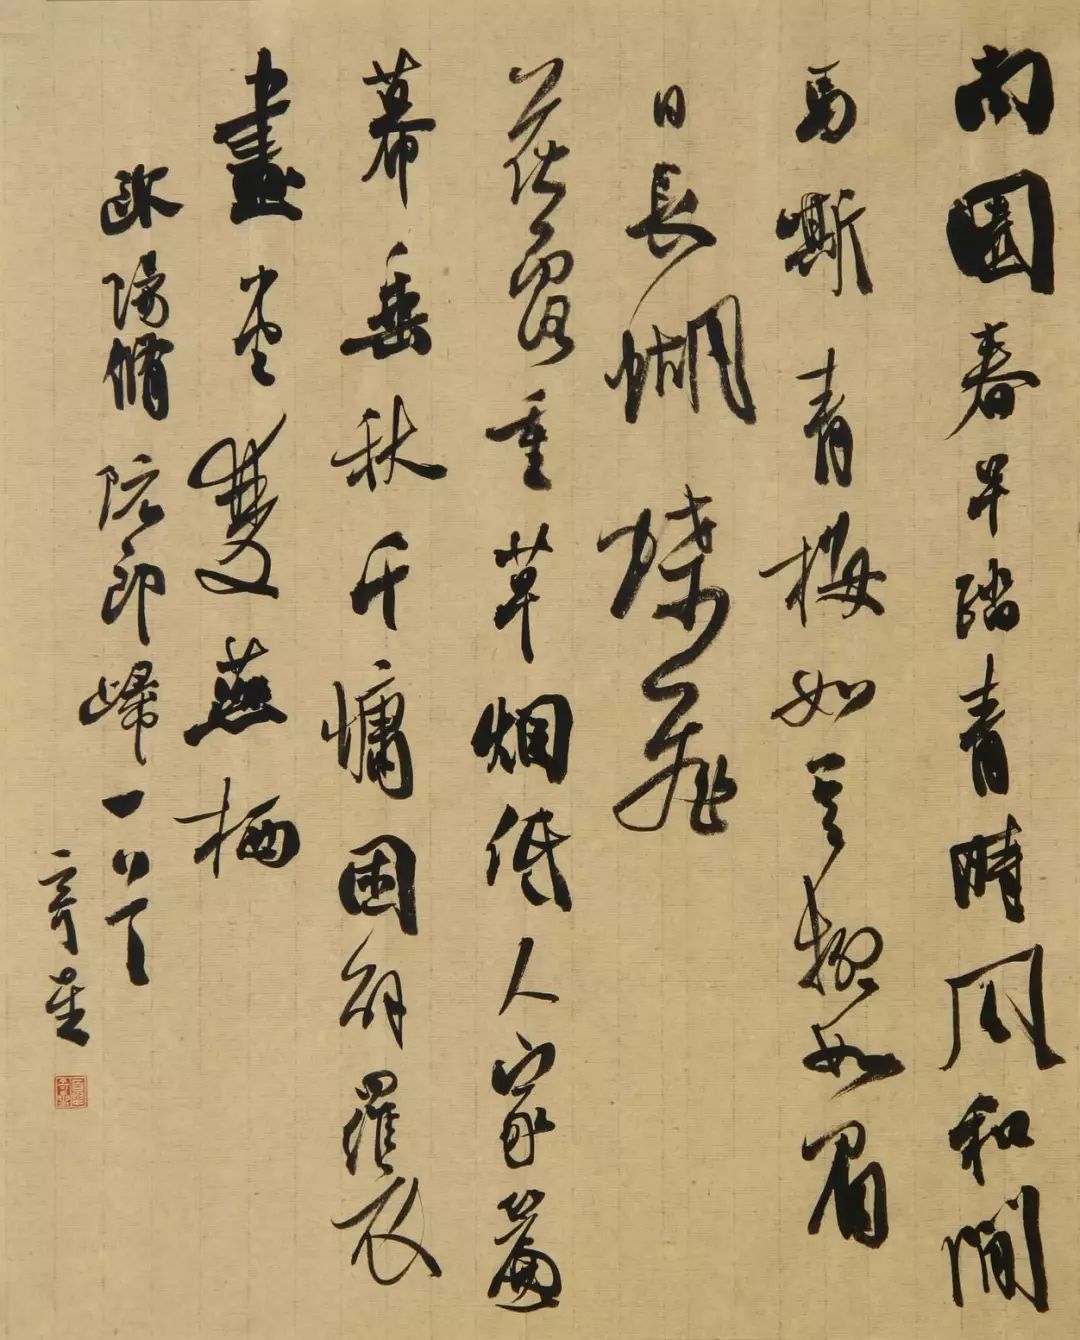 南園春早踏青時風和聞
馬嘶青梅如豆柳如眉
日長蝴蝶飛
花露重草烟低人家簾
幕垂秋千慵困解羅衣
畫堂雙燕栖
歐陽脩阮郎歸一